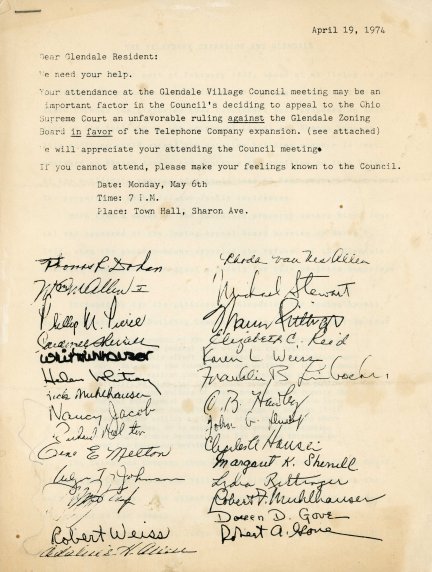 April 19, 1974
Dear Glendale Resident:
We need your help.
Your attendance at the Glendale Village Council meeting may be an
important factor in the Council's deciding to appeal to the Ohio
Supreme Court an unfavorable ruling against the Glendale Zoning
Board in favor of the Telephone Company expansion. (see attached)
We will appreciate your attending the Council meeting.
If you cannot attend, please make your feelings known to the Council.
Date: Monday, May 6th
Time: 7 P.M.
Place: Town Hall, Sharon Ave.
Thomas R. Dohan
Allen
Phillip M.
Helen Whitney
Jack Muhlhauser
Nancy Jacob
Gene E. Melton
Johnson
Robert Weiss
Rhoda van Nes Allen
Michael Stewart
Rittinger
Elizabeth C. Reed
Karen L. Weiss
Franklin B.
C. B. Hawley
John G.
Charles A.
Margaret K. Sherrill
Lydia Rittinger
Robert F. Muhlhauser
Doreen D. Gove
Robert A. Gove